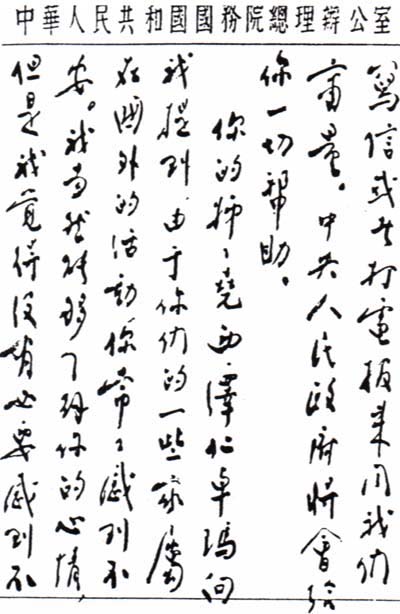 中華人民共和國國務院總理辦公室
寫信或者打電報来同我们
商量。中央人民政府將會给
你一切幫助。
你的姊々堯西澤仁卓瑪向
我提到由于你们的一些家屬
在國外的活動你常々感到不
安。我当然能够了解你的心情,
但是我覺得没有必要感到不